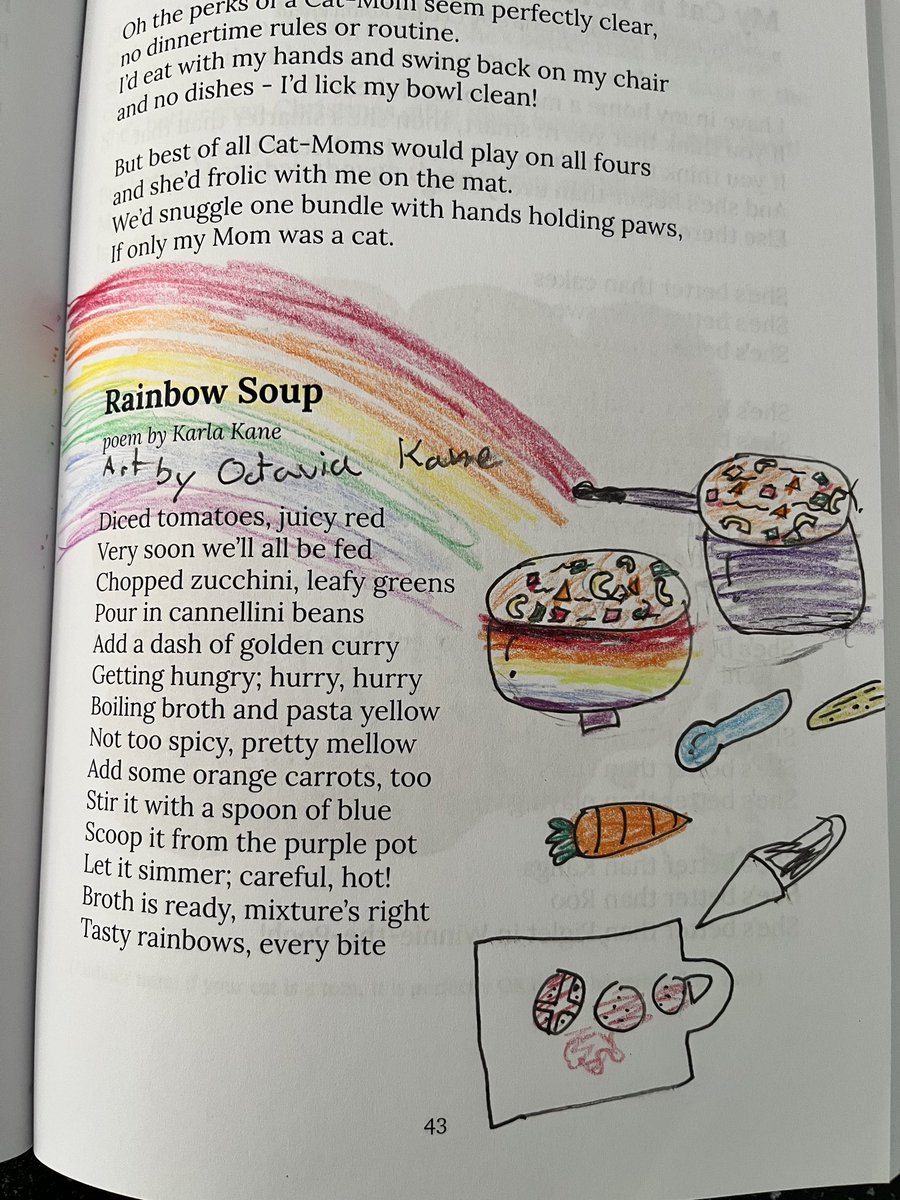 Oh the perks of a Cat-Mom seem perfectly clear,
no dinnertime rules or routine.
I'd eat with my hands and swing back on my chair
and no dishes - I'd lick my bowl clean!
But best of all Cat-Moms would play on all fours
and she'd frolic with me on the mat.
We'd snuggle one bundle with hands holding paws,
If only my Mom was a cat.
Rainbow Soup
poem by Karla Kane
Art by Octavia Kane
Diced tomatoes, juicy red
Very soon we'll all be fed
Chopped zucchini, leafy greens
Pour in cannellini beans
Add a dash of golden curry
Getting hungry; hurry, hurry
Boiling broth and pasta yellow
Not too spicy, pretty mellow
Add some orange carrots, too
Stir it with a spoon of blue
Scoop it from the purple pot
Let it simmer; careful, hot!
Broth is ready, mixture's right
Tasty rainbows, every bite
43